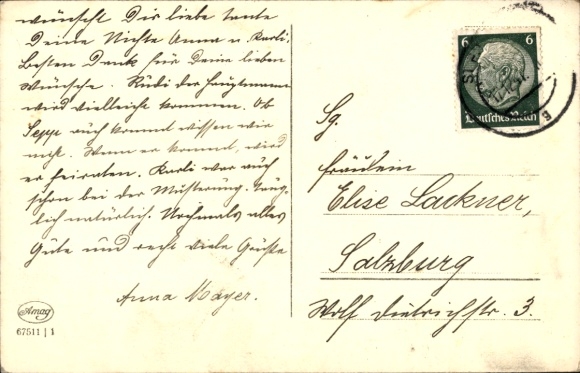 wünscht Dir liebe tante
Deine Nichte Anna u. Karli.
Besten Dank für Deine lieben
Wünsche. Rudi der Hauptmann
wird vielleicht kommen. Ob
Sepp auch kommt wissen wir
nicht. Wenn er kommt, wird
er heiraten. Karli war auch
schon bei der Musterung. taug-
lich natürlich. Nochmals alles
Gute und recht viele Grüße
Anna Mayer.
Amag
67511 | 1
6 6
Deutsches Reich
Sg.
Fräulein
Elise Lackner,
Salzburg
Wolf Dietrichstr. 3.